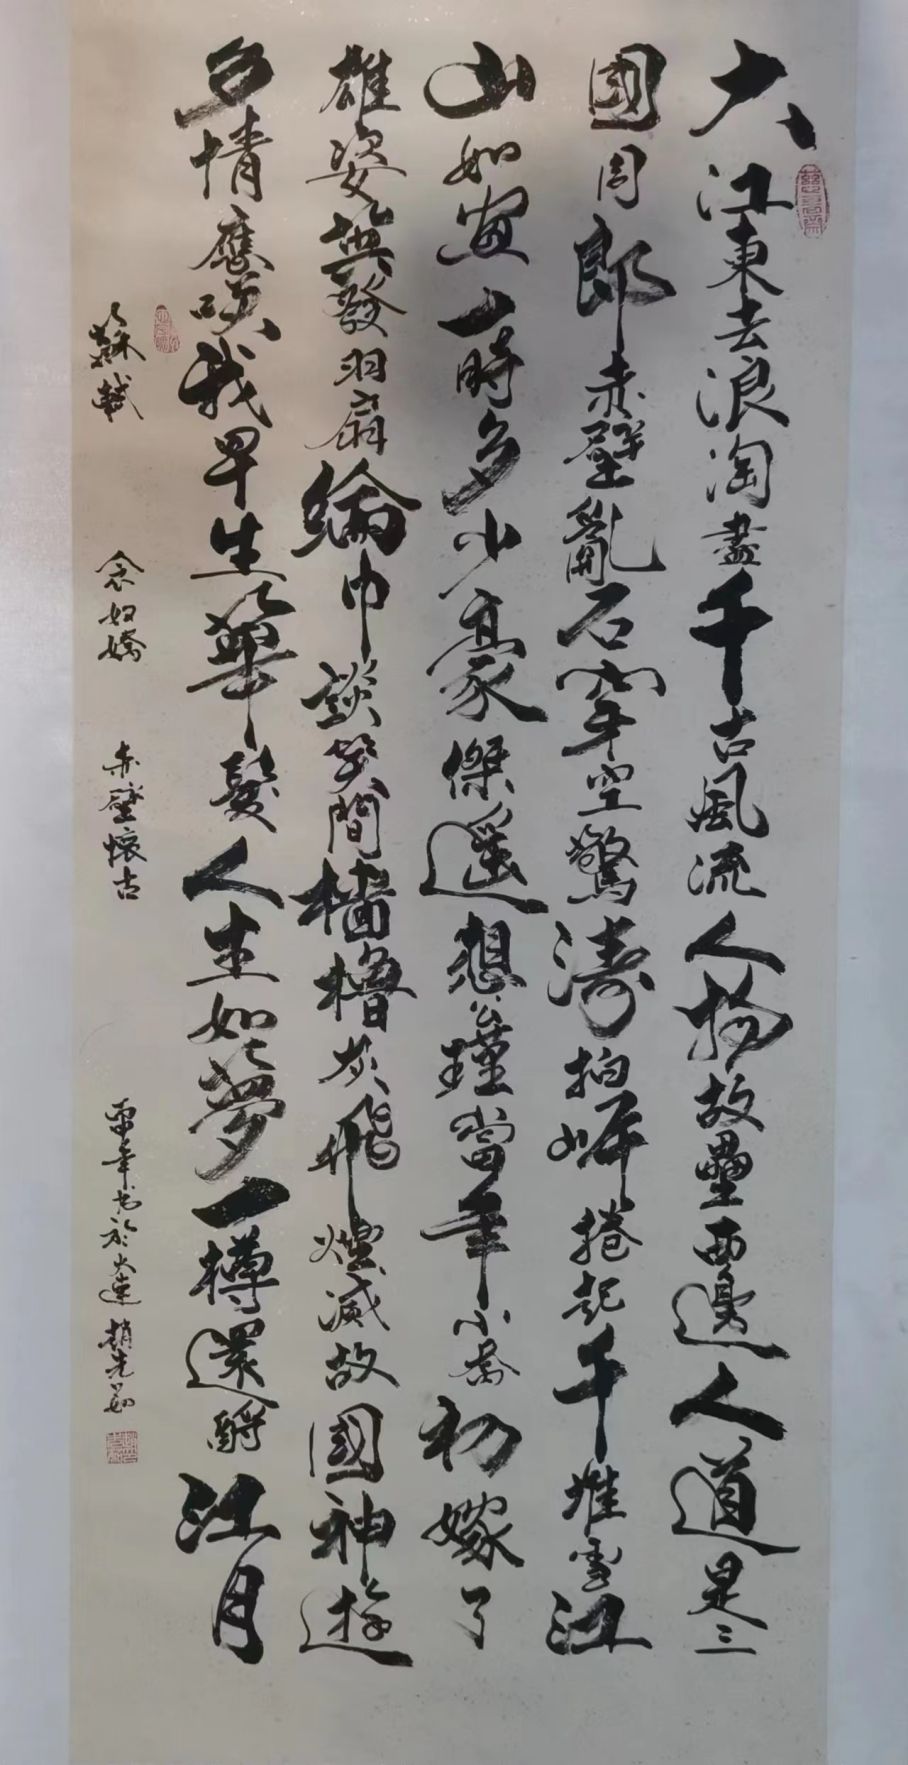 大江東去浪淘盡千古風流人物故壘西邊人道是三
國周郎赤壁亂石穿空驚濤拍岸捲起千堆雪江
山如畫一時多少豪傑遥想公瑾當年小喬初嫁了
雄姿英發羽扇綸巾談笑間檣櫓灰飛煙滅故國神遊
多情應笑我早生華髮人生如夢一樽還酹江月
蘇軾 念奴嬌 赤壁懷古 年书於大連 趙先